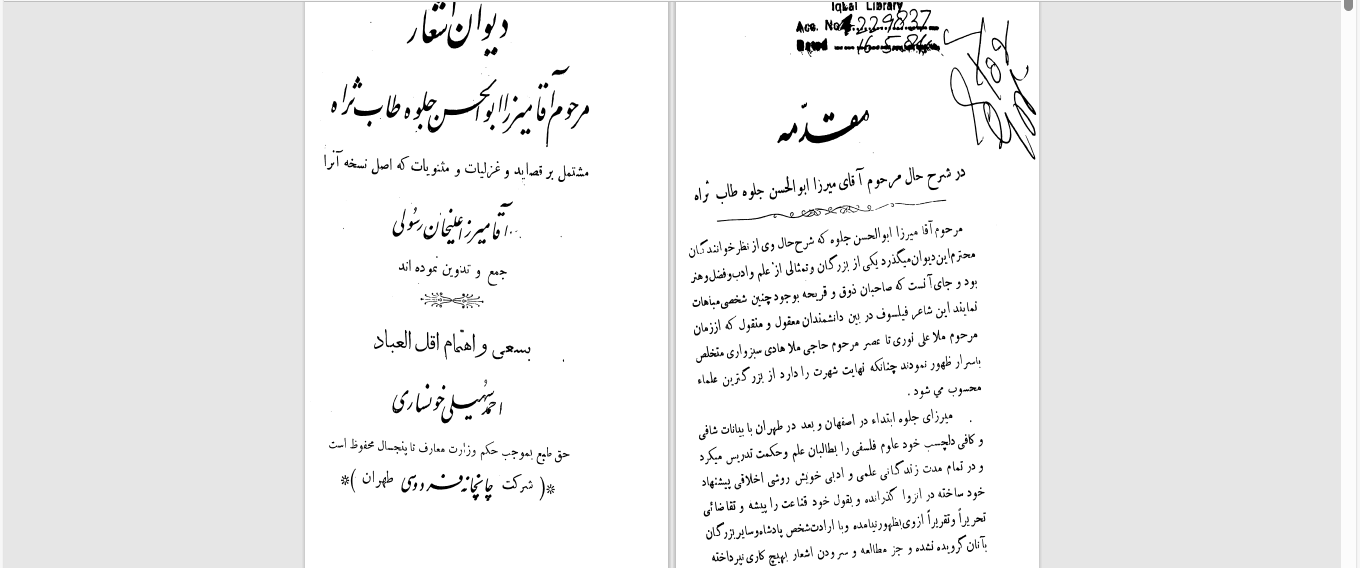 دیوان اشعار
مرحوم آقا میرزا ابوالحسن جلوه طاب ثراه
مشتمل بر قصاید و غزلیات و مثنویات که اصل نسخه آنرا
آقا میرزا علیخان رسولی
جمع و تدوین نموده اند
بسعی و اهتمام اقل العباد
احمد سهیلی خونساری
حق طبع بموجب حکم وزارت معارف تا پنجسال محفوظ است
*( شرکت چاپخانه فردوسی طهران )*
Iqbal Library
Acc. No. 229837
Dated 16-5-86
مقدّمه
در شرح حال مرحوم آقای میرزا ابوالحسن جلوه طاب ثراه
مرحوم آقا میرزا ابوالحسن جلوه که شرح حال وی از نظر خوانندگان
محترم این دیوان میگذرد یکی از بزرگان و تمثالی از علم و ادب و فضل و هنر
بود و جای آنست که صاحبان ذوق و قریحه بوجود چنین شخصی مباهات
نمایند این شاعر فیلسوف در بین دانشمندان معقول و منقول که از زمان
مرحوم ملا علی نوری تا عصر مرحوم حاجی ملا هادی سبزواری متخلص
باسرار ظهور نمودند چنانکه نهایت شهرت را دارد از بزرگترین علماء
محسوب می شود .
میرزای جلوه ابتداء در اصفهان و بعد در طهران با بیانات شافی
و کافی دلچسب خود علوم فلسفی را بطالبان علم و حکمت تدریس میکرد
و در تمام مدت زندگانی علمی و ادبی خویش روشی اخلاقی پیشنهاد
خود ساخته در انزوا گذرانده و بقول خود قناعت را پیشه و تقاضائی
تحریراً و تقریراً از وی بظهور نیامده و با ارادت شخص پادشاه و سایر بزرگان
بآنان گرویده نشده و جز مطالعه و سرودن اشعار بهیچ کاری نپرداخته